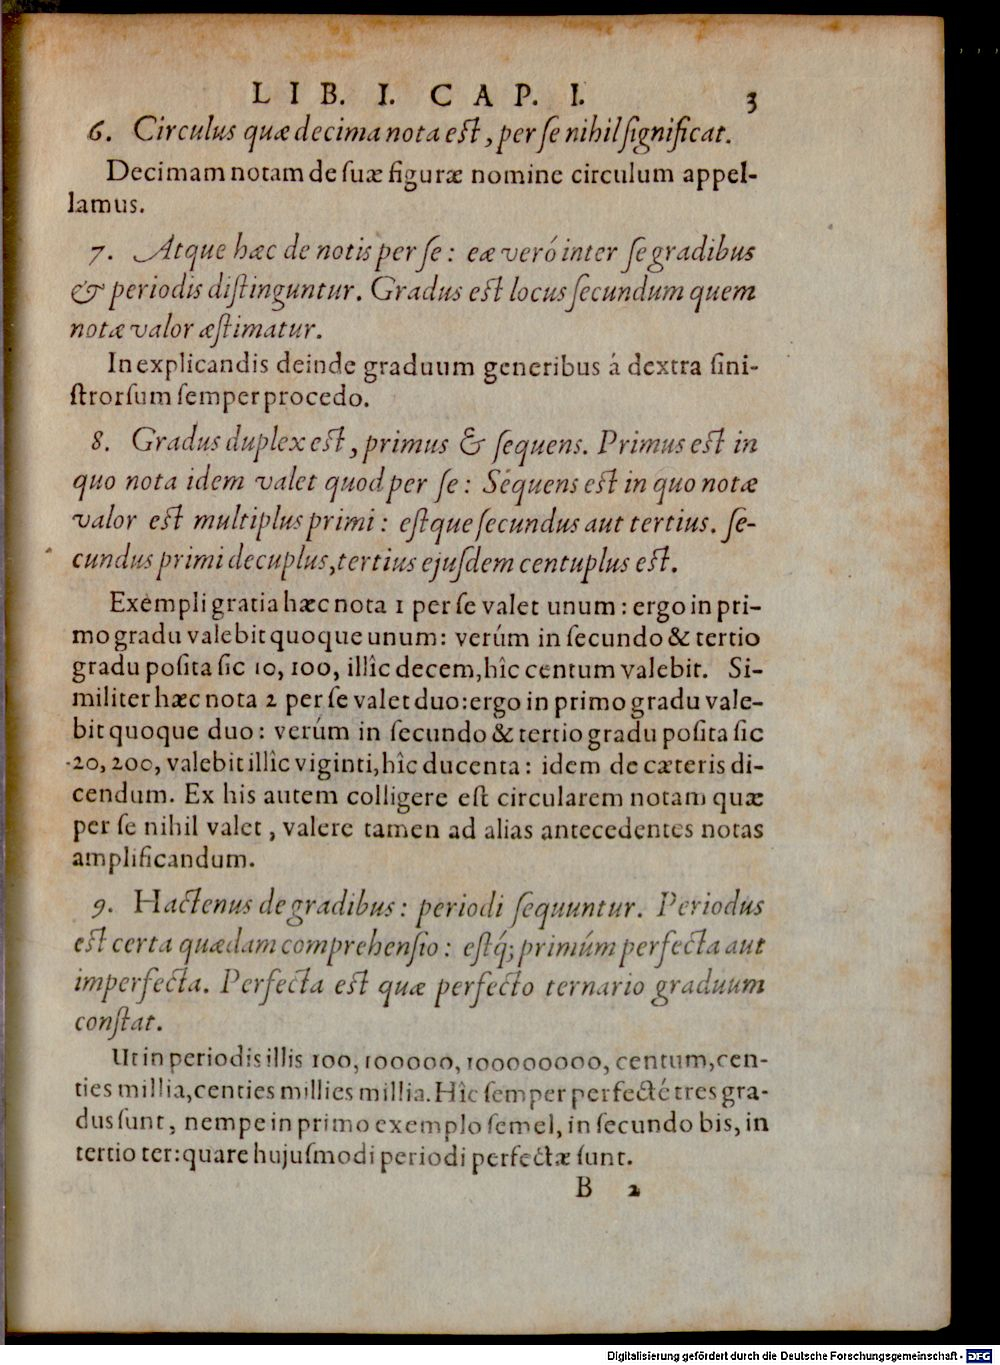 LIB. I. CAP. I. 3
6. Circulus quæ decima nota est, per se nihil significat.
Decimam notam de suæ figuræ nomine circulum appel-
lamus.
7. Atque hæc de notis per se: eæ veró inter se gradibus
& periodis distinguntur. Gradus est locus secundum quem
notæ valor æstimatur.
In explicandis deinde graduum generibus á dextra sini-
strorsum semper procedo.
8. Gradus duplex est, primus & sequens. Primus est in
quo nota idem valet quod per se: Séquens est in quo notæ
valor est multiplus primi: estque secundus aut tertius. se-
cundus primi decuplus, tertius ejusdem centuplus est.
Exempli gratia hæc nota 1 per se valet unum: ergo in pri-
mo gradu valebit quoque unum: verúm in secundo & tertio
gradu posita sic 10, 100, illîc decem, hîc centum valebit. Si-
militer hæc nota 2 per se valet duo: ergo in primo gradu vale-
bit quoque duo: verúm in secundo & tertio gradu posita sic
20, 200, valebit illîc viginti, hîc ducenta: idem de cæteris di-
cendum. Ex his autem colligere est circularem notam quæ
per se nihil valet, valere tamen ad alias antecedentes notas
amplificandum.
9. Hactenus de gradibus: periodi sequuntur. Periodus
est certa quædam comprehensio: estq́; primúm perfecta aut
imperfecta. Perfecta est quæ perfecto ternario graduum
constat.
Ut in periodis illis 100, 100000, 100000000, centum, cen-
ties millia, centies millies millia. Hîc semper perfecté tres gra-
dus sunt, nempe in primo exemplo semel, in secundo bis, in
tertio ter: quare hujusmodi periodi perfectæ sunt.
B 2
Digitalisierung gefördert durch die Deutsche Forschungsgemeinschaft - DFG